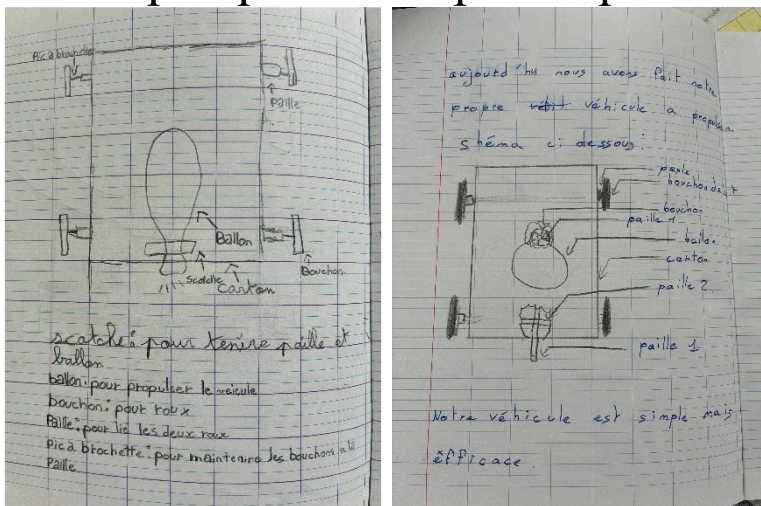 Pic à brochette
Paille
Ballon
scotche
Carton
Bouchon
scatche: pour tenire paille et
ballon
ballon: pour propulser le veicule
bouchon: pour roux
Paille: pour lié les deux roux
Pic à brochette: pour maintenire les bouchons a la
Paille
aujourd'hui nous avons fait notre
propre véhicule a propulsion
schéma ci dessous:
perle
bouchon de
bouchon
paille
ballon
carton
paille 2
paille 1
Notre véhicule est simple mais
êfficace.